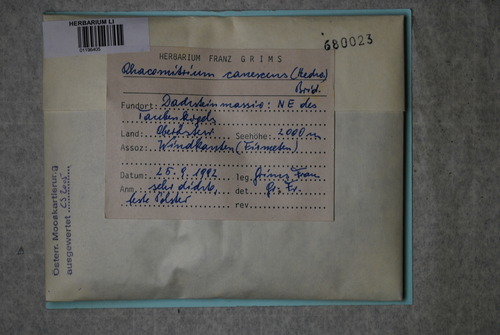 HERBARIUM LI
01196405
680023
HERBARIUM FRANZ GRIMS
Rhacomitrium canescens (Hedw.)
Brid.
Fundort: Dachsteinmassiv: NE des
Taubenkogels
Land: Oberösterr. Seehöhe: 2000 m
Assoz: Windkanten (Firmeten)
Datum: 25.9.1992 leg. Grims Franz
Anm: sehr dichte, det. Gr. Fr.
feste Polster rev.
Österr. Mooskartierung
ausgewertet